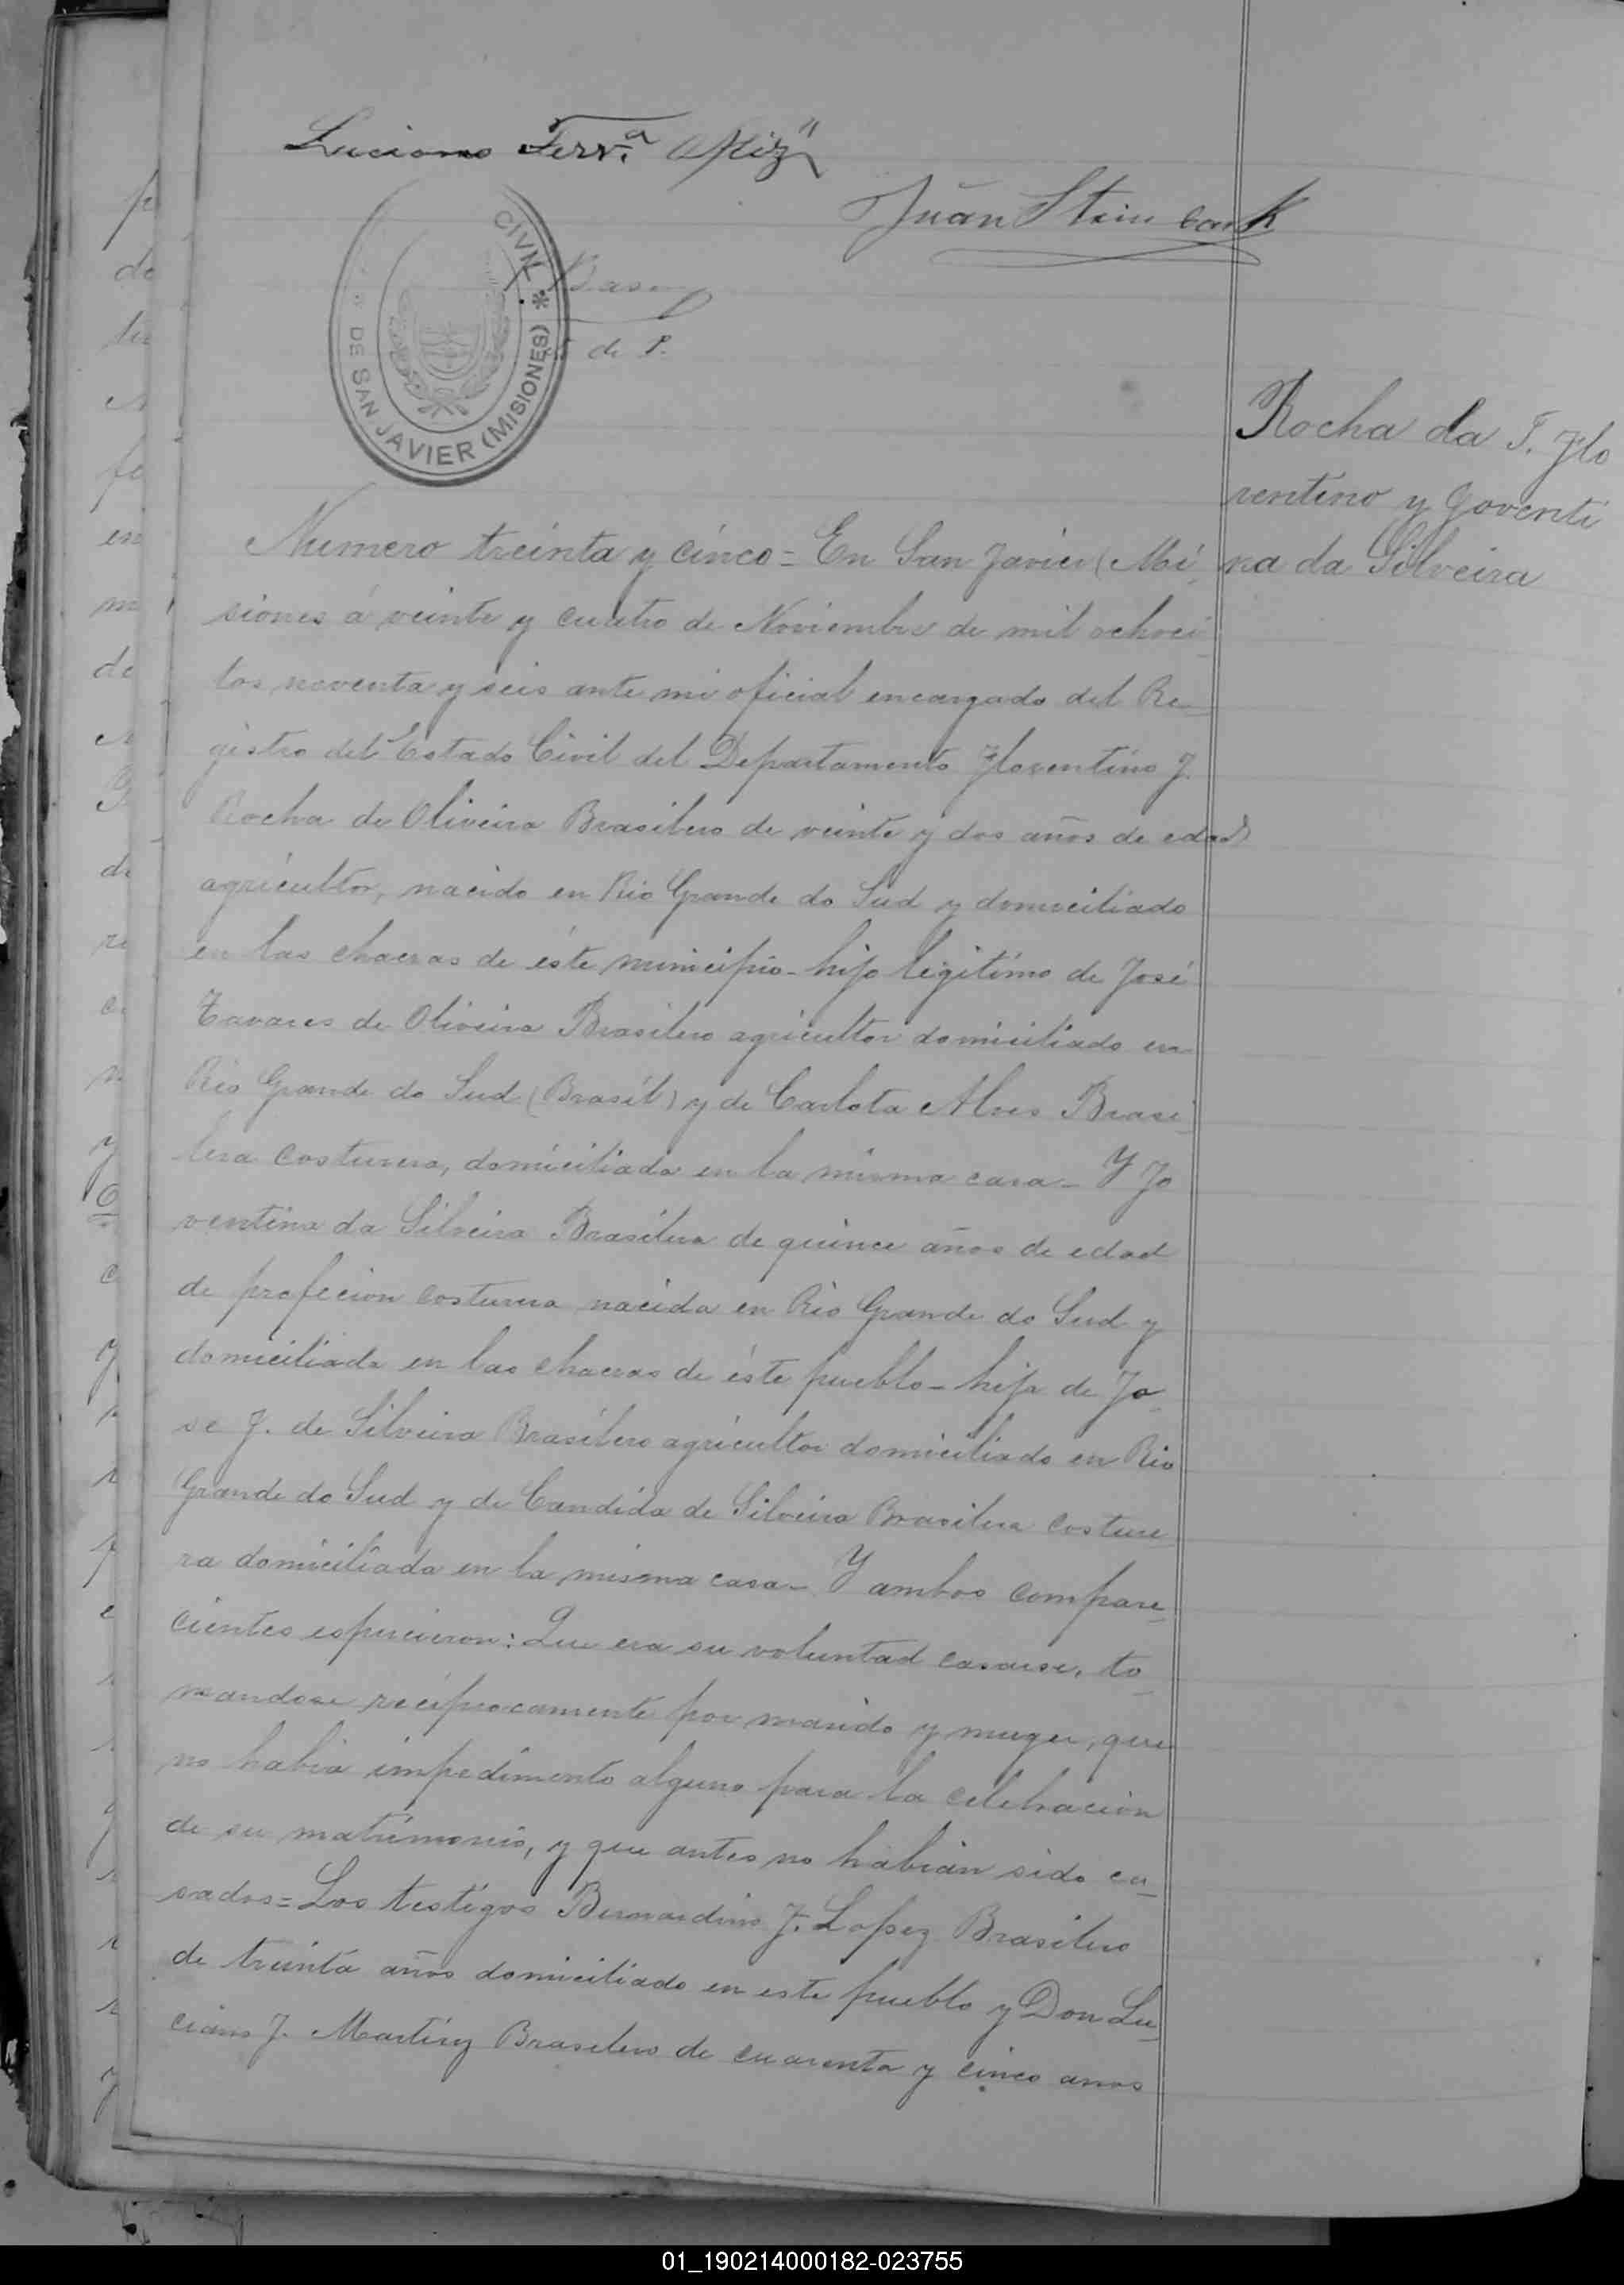 Luciano Ferr.ª
Juan Steinback
CIVIL * DE SAN JAVIER (MISIONES)
de P.
Rocha da T. Flo
rentino y Joventi
na da Silveira
Numero treinta y cinco = En San Javier (Mi-
siones á veinte y cuatro de Noviembre de mil ochoci-
tos noventa y seis ante mi oficial encargado del Re-
gistro del Estado Civil del Departamento Florentino J.
Rocha de Oliveira Brasilero de veinte y dos años de edad
agricultor, nacido en Rio Grande do Sud y domiciliado
en las chacras de éste municipio - hijo legitimo de José
Tavares de Oliveira Brasilero agricultor domiciliado en
Rio Grande do Sud (Brasil) y de Carlota Alves Brasi-
lera costurera, domiciliada en la misma casa - Y Jo
ventina da Silveira Brasilera de quince años de edad
de profecion costurera nacida en Rio Grande do Sud y
domiciliada en las chacras de éste pueblo - hija de Jo-
se J. de Silveira Brasilero agricultor domiciliado en Rio
Grande do Sud y de Candida de Silveira Brasilera costure
ra domiciliada en la misma casa - Y ambos compare-
cientes esperieron: Que era su voluntad casarse, to-
mandose reciprocamente por marido y muger, que
no habia impedimento alguno para la celebracion
de su matrimonio, y que antes no habian sido ca-
sados = Los testigos Bernardino J. Lopez Brasilero
de treinta años domiciliado en este pueblo y Don Lu-
ciano J. Martinz Brasilero de cuarenta y cinco anos
01_190214000182-023755